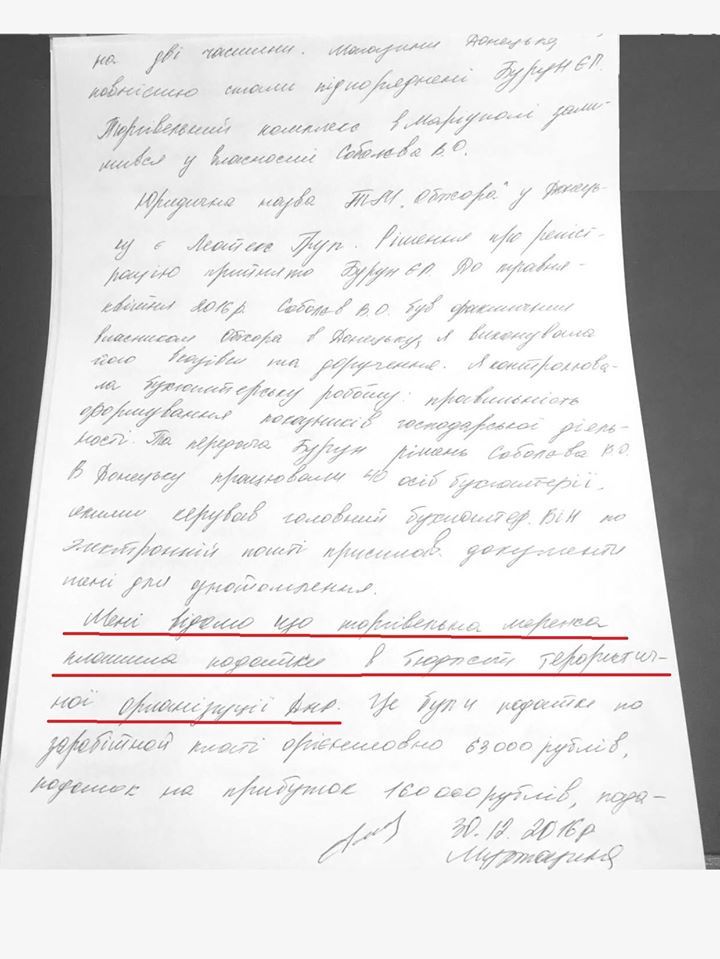 на дві частини. Магазини Донецька
повністю стали підпорядковані Бурун Є.П.
Торгівельний комплекс в Маріуполі зали-
шився у власності Соболєва В.О.
Юридична назва ТМ "Обжора" у Донець-
ку є Груп. Рішення про реєст-
рацію прийнято Бурун Є.П. До травня-
квітня 2016р. Соболєв В.О. був фактичним
власником Обжора в Донецьку, я виконувала
його вказівки та доручення. Я контролюва-
ла бухгалтерську роботу: правильність
формування показників господарської діяль-
ності. Та передача Бурун рішень Соболєва В.О.
В Донецьку працювали 40 осіб бухгалтерії,
якими керував головний бухгалтер. Він по
электронній пошті присилав документи
мені для
Мені відомо що торгівельна мережа
платила податки в бюджет терористич-
ної організації Днр. Це були податки по
заробітной платі орієнтовно 63000 рублів,
податок на прибуток 160000 рублів, пода-
30.12.2016р